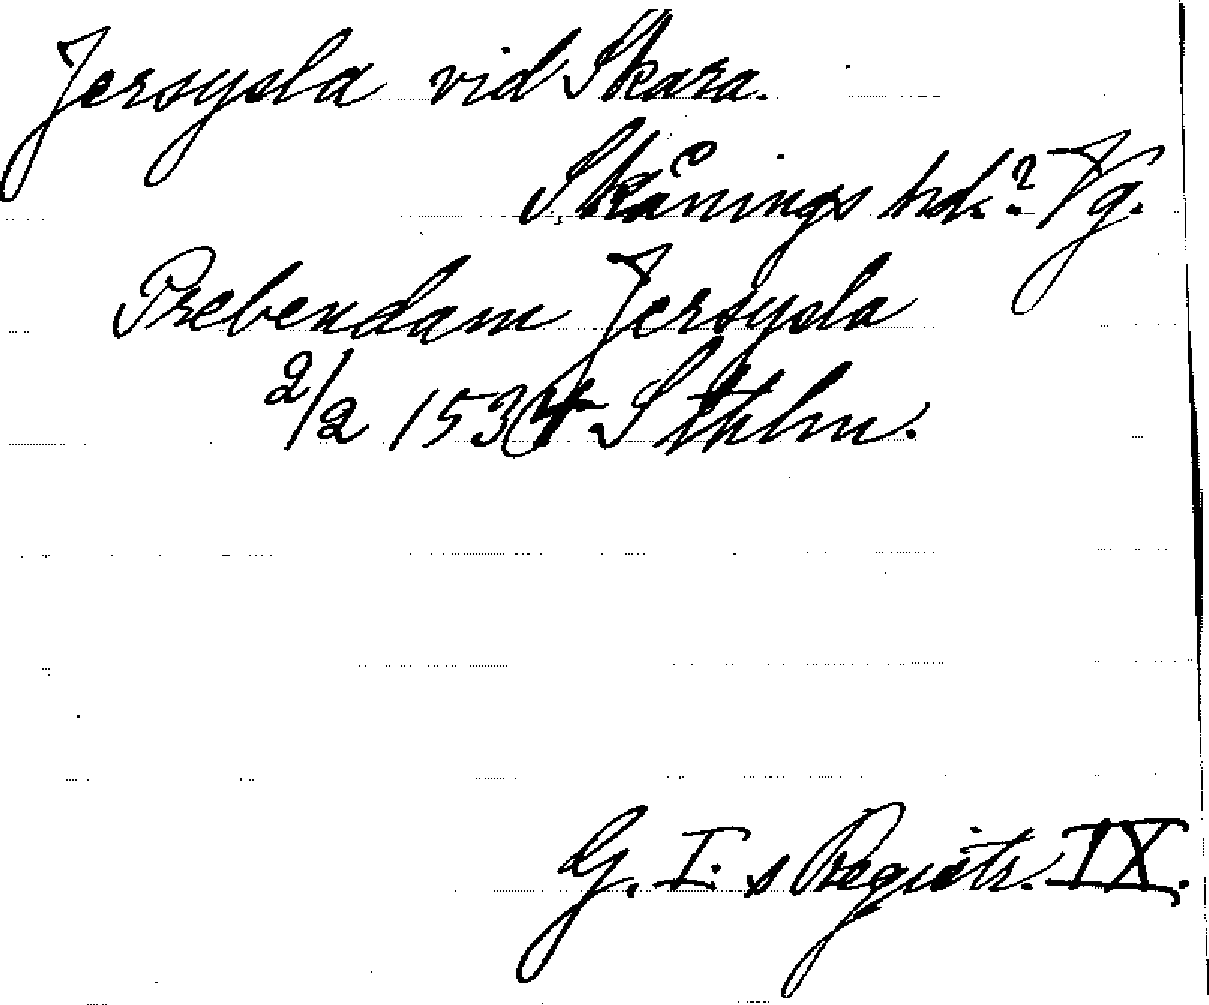 Jersysla vid Skara.
Skånings hd.? Vg.
Prebendam Jersysla
2/2 1534. Sthlm.
G. I:s Registr. IX.